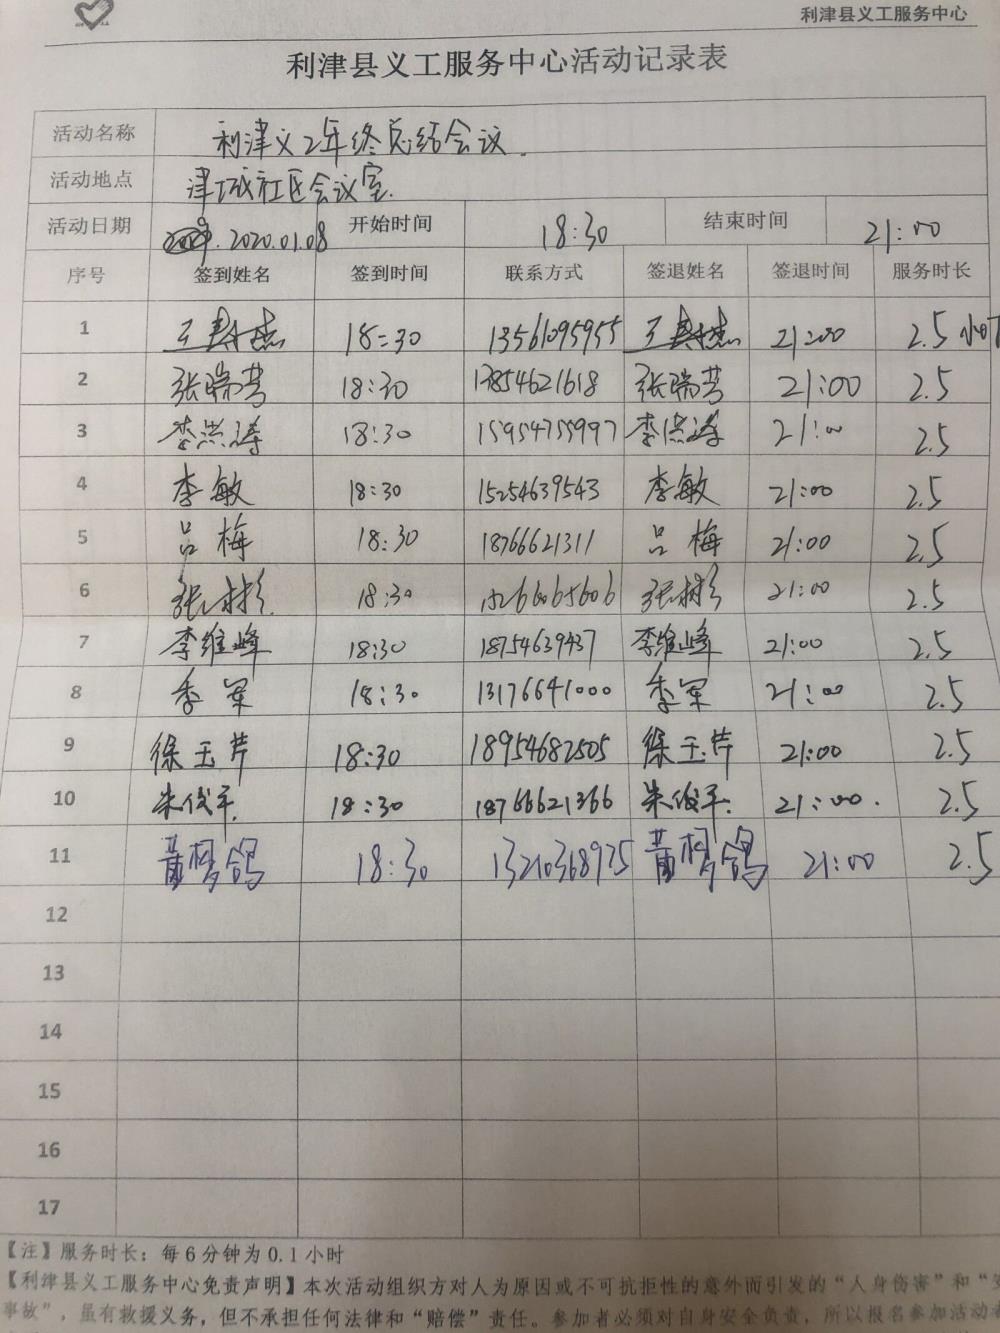 利津县义工服务中心
利津县义工服务中心活动记录表
活动名称 利津义工年终总结会议.
活动地点 津城社区会议室.
活动日期 2020.01.08 开始时间 18:30 结束时间 21:00
序号 签到姓名 签到时间 联系方式 签退姓名 签退时间 服务时长
1 王 18:30 13561095955 王 21:00 2.5 小时
2 张瑞芳 18:30 13854621618 张瑞芳 21:00 2.5
3 李洪涛 18:30 15954755997 李洪涛 21:00 2.5
4 李敏 18:30 15254639543 李敏 21:00 2.5
5 吕梅 18:30 18766621311 吕梅 21:00 2.5
6 张彬彬 18:30 15266065606 张彬 21:00 2.5
7 李维峰 18:30 18754639437 李维峰 21:00 2.5
8 李军 18:30 13176641000 李军 21:00 2.5
9 徐玉芹 18:30 18954682505 徐玉芹 21:00 2.5
10 朱俊平. 18:30 18766621366 朱俊平. 21:00. 2.5
11 黄梦鸽 18:30 13210368975 黄梦鸽 21:00 2.5
12
13
14
15
16
17
【注】服务时长：每6分钟为0.1小时
【利津县义工服务中心免责声明】本次活动组织方对人为原因或不可抗拒性的意外而引发的“人身伤害”和“
事故”，虽有救援义务，但不承担任何法律和“赔偿”责任。参加者必须对自身安全负责，所以报名参加活动者